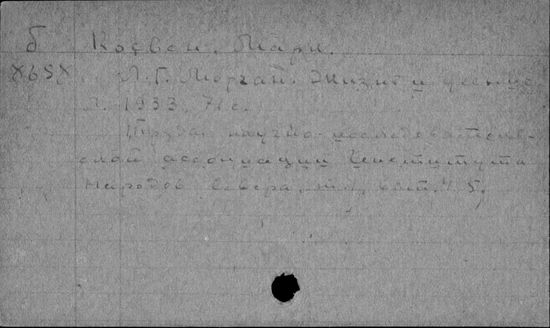 б Косвен. Марк.
Х65Х Л. Г. Морган. Жизнь и учение
Л. 1933. 71 с.
Труды научно-исследователь-
ской ассоциации Института
народов Севера. вып.